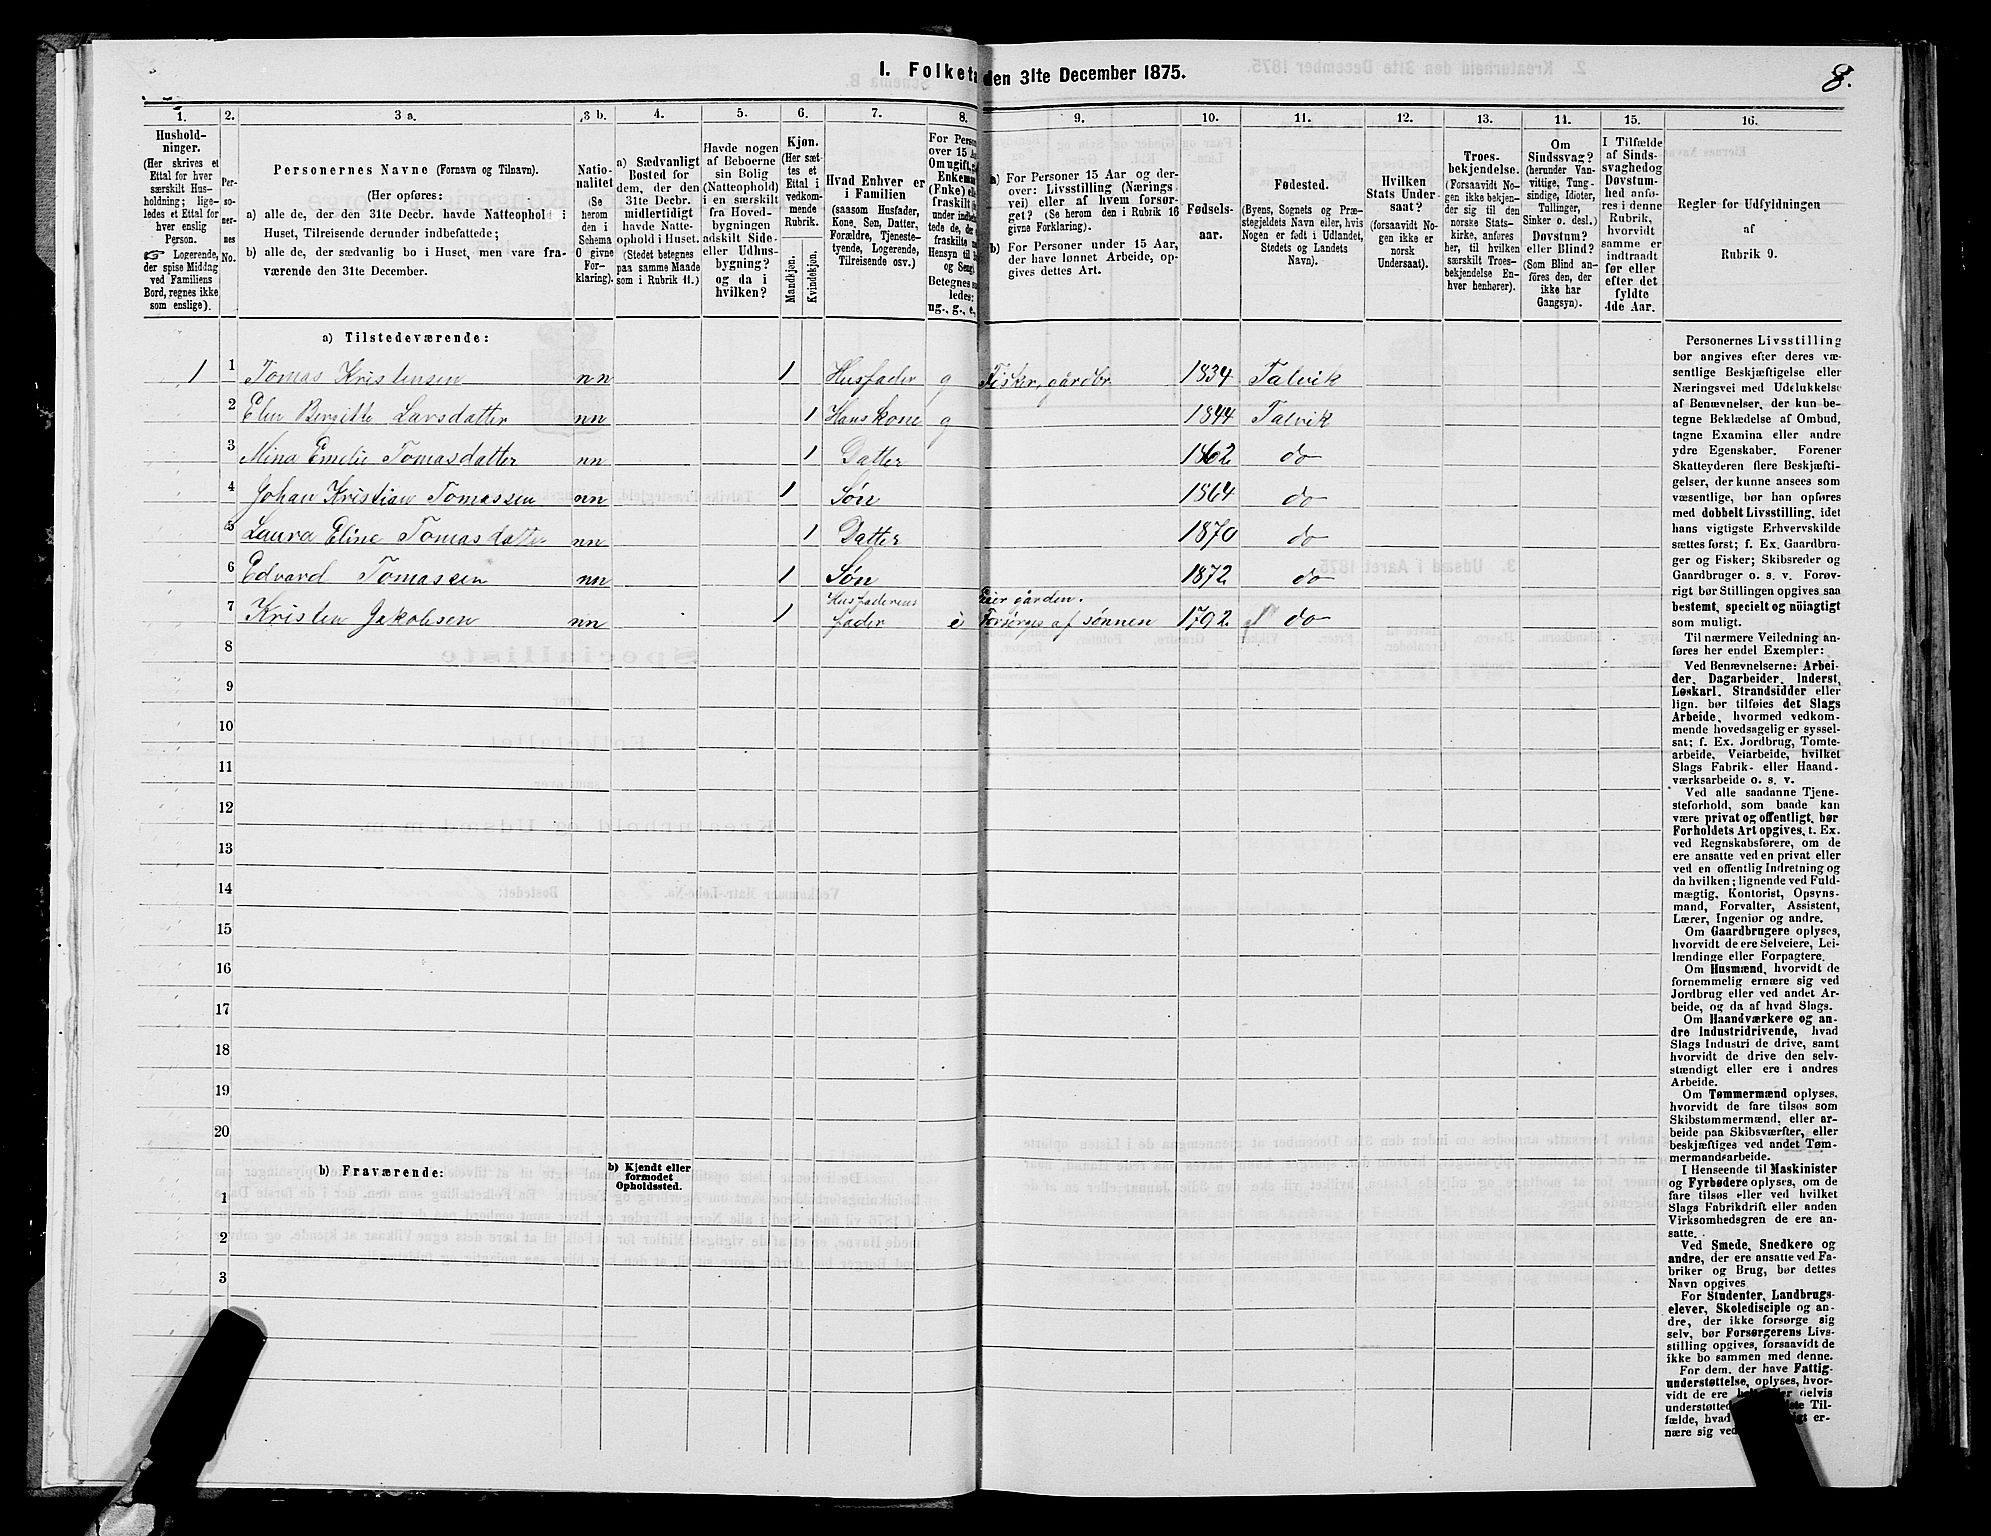 1. Folketa den 31te December 1875.
8.
1. 2. 3 a. 3 b. 4. 5. 6. 7. 8. 9. 10. 11. 12. 13. 14. 15. 16.
Hushold-
ninger.
(Her skrives et
Ettal for hver
særskilt Hus-
holdning; lige-
ledes et Ettal for
hver enslig
Person.
Logerende,
der spise Middag
ved Familiens
Bord, regnes ikke
som enslige).
Per-
so-
ner-
nes
No.
Personernes Navne (Fornavn og Tilnavn).
(Her opføres:
a) alle de, der den 31te Decbr. havde Natteophold i
Huset, Tilreisende derunder indbefattede;
b) alle de, der sædvanlig bo i Huset, men vare fra-
værende den 31te December.
Natio-
nalitet
(Se
herom
den i
Schema
O givne
For-
klaring).
a) Sædvanligt
Bosted for
dem, der den
31te Decbr.
midlertidigt
havde Natte-
ophold i Huset.
(Stedet betegnes
paa samme Maade
som i Rubrik 11.)
Havde nogen
af Beboerne
sin Bolig
(Natteophold)
i en særskilt
fra Hoved-
bygningen
adskilt Side-
eller Udhus-
bygning?
og da i
hvilken?
Kjøn.
(Her sæt-
tes et
Ettal i
vedkom-
mende
Rubrik.
Mandkjøn.
Kvindekjøn.
Hvad Enhver er
i Familien
(saasom Husfader,
Kone, Søn, Datter,
Forældre, Tjeneste-
tyende, Logerende,
Tilreisende osv.)
For Person
over 15 Aa
Om ugift, g
Enkema
(Fnke) ell
fraskilt
under indbe
tede de, der
fraskilte
Hensyn til
og Seng
Betegnes s
ledes:
ug., g., e.,
a) For Personer 15 Aar og der-
over: Livsstilling (Nærings
vei) eller af hvem forsør-
get? (Se herom den i Rubrik 16
givne Forklaring).
b) For Personer under 15 Aar,
der have lønnet Arbeide, op-
gives dettes Art.
Fødsels-
aar.
Fødested.
(Byens, Sognets og Præ-
stegjeldets Navn, eller, hvis
Nogen er født i Udlandet,
Stedets og Landets
Navn).
Hvilken
Stats Under-
saat?
(forsaavidt No-
gen ikke er
norsk
Undersaat).
Troes-
bekjendelse.
(Forsaavidt No-
gen ikke bekjen-
der sig til den
norske Stats-
kirke, anføres
her, til hvilken
særskilt Troes-
bekjendelse En-
hver henhører).
Om
Sindssvag?
(herunder Van-
vittige, Tung-
sindige, Idioter,
Tullinger,
Sinker o. desl.)
Døvstum?
eller Blind?
(Som Blind an-
føres den, der
ikke har
Gangsyn).
I Tilfælde
af Sinds-
svaghed og
Døvstum-
hed anfø-
res i denne
Rubrik,
hvorvidt
samme er
indtraadt
før eller
efter det
fyldte
4de Aar.
Regler for Udfyldningen
af
Rubrik 9.
a) Tilstedeværende:
1 1 Tomas Kristensen nn 1 Husfader g Fiskr, gårdbr 1834 Talvik
2 Elen Bergitte Larsdatter nn 1 Hans kone g 1844 Talvik
3 Mina Emelie Tomasdatter nn 1 Datter 1862 do
4 Johan Kristian Tomassen nn 1 Søn 1864 do
5 Laura Eline Tomasdatter nn 1 Datter 1870 do
6 Edvard Tomassen nn 1 Søn 1872 do
Husfaderens Eier gården.
7 Kristen Jakobsen nn 1 fader e Forsørges af sønnen 1792 do
8
9
10
11
12
13
14
15
16
17
18
19
20
b) Fraværende:
b) Kjendt eller
formodet
Opholdssted.
1
2
3
Personernes Livsstilling
bør angives efter deres væ-
sentlige Beskjæftigelse eller
Næringsvei med Udelukkelse
af Benævnelser, der kun be-
tegne Beklædelse af Ombud,
tagne Examina eller andre
ydre Egenskaber. Forener
Skatteyderen flere Beskjæfti-
gelser, der kunne ansees som
væsentlige, bør han opføres
med dobbelt Livsstilling, idet
hans vigtigste Erhvervskilde
sættes først; f. Ex. Gaardbru-
ger og Fisker; Skibsreder og
Gaardbruger o. s. v. Forøv-
rigt bør Stillingen opgives saa
bestemt, specielt og nöiagtigt
som muligt.
Til nærmere Veiledning an-
føres her endel Exempler:
Ved Benævnelserne: Arbei-
der, Dagarbeider, Inderst,
Løskarl, Strandsidder eller
lign. bør tilføies det Slags
Arbeide, hvormed vedkom-
mende hovedsagelig er syssel-
sat; f. Ex. Jordbrug, Tomte-
arbeide, Veiarbeide, hvilket
Slags Fabrik- eller Haand-
værksarbeide o. s. v.
Ved alle saadanne Tjene-
steforhold, som baade kan
være privat og offentligt, bør
Forholdets Art opgives, t. Ex.
ved Regnskabsførere, om de
ere ansatte ved en privat eller
ved en offentlig Indretning og
da hvilken; lignende ved Fuld-
mægtig, Kontorist, Opsyns-
mand, Forvalter, Assistent,
Lærer, Ingeniør og andre.
Om Gaardbrugere oplyses,
hvorvidt de ere Selveiere, Lei-
lændinge eller Forpagtere.
Om Husmænd, hvorvidt de
fornemmelig ernære sig ved
Jordbrug eller ved andet Ar-
beide, og da af hvad Slags.
Om Haandværkere og an-
dre Industridrivende, hvad
Slags Industri de drive, samt
hvorvidt de drive den selv-
stændigt eller ere i andres
Arbeide.
Om Tømmermænd oplyses,
hvorvidt de fare tilsøs som
Skibstømmermænd, eller ar-
beide paa Skibsværfter, eller
beskjæftiges ved andet Tøm-
mermandsarbeide.
I Henseende til Maskinister
og Fyrbødere oplyses, om de
fare tilsøs eller ved hvilket
Slags Fabrikdrift eller anden
Virksomhedsgren de ere an-
satte.
Ved Smede, Snedkere og
andre, der ere ansatte ved Fa-
briker og Brug, bør dettes
Navn opgives.
For Studenter, Landbrugs-
elever, Skoledisciple og an-
dre, der ikke forsørge sig
selv, bør Forsørgerens Livs-
stilling opgives, forsaavidt de
ikke bo sammen med denne.
For dem, der have Fattig-
understøttelse, oplyses, hvor-
vidt de ere delvis
understøtted Til-
fælde, hvad er-
nære sig ved